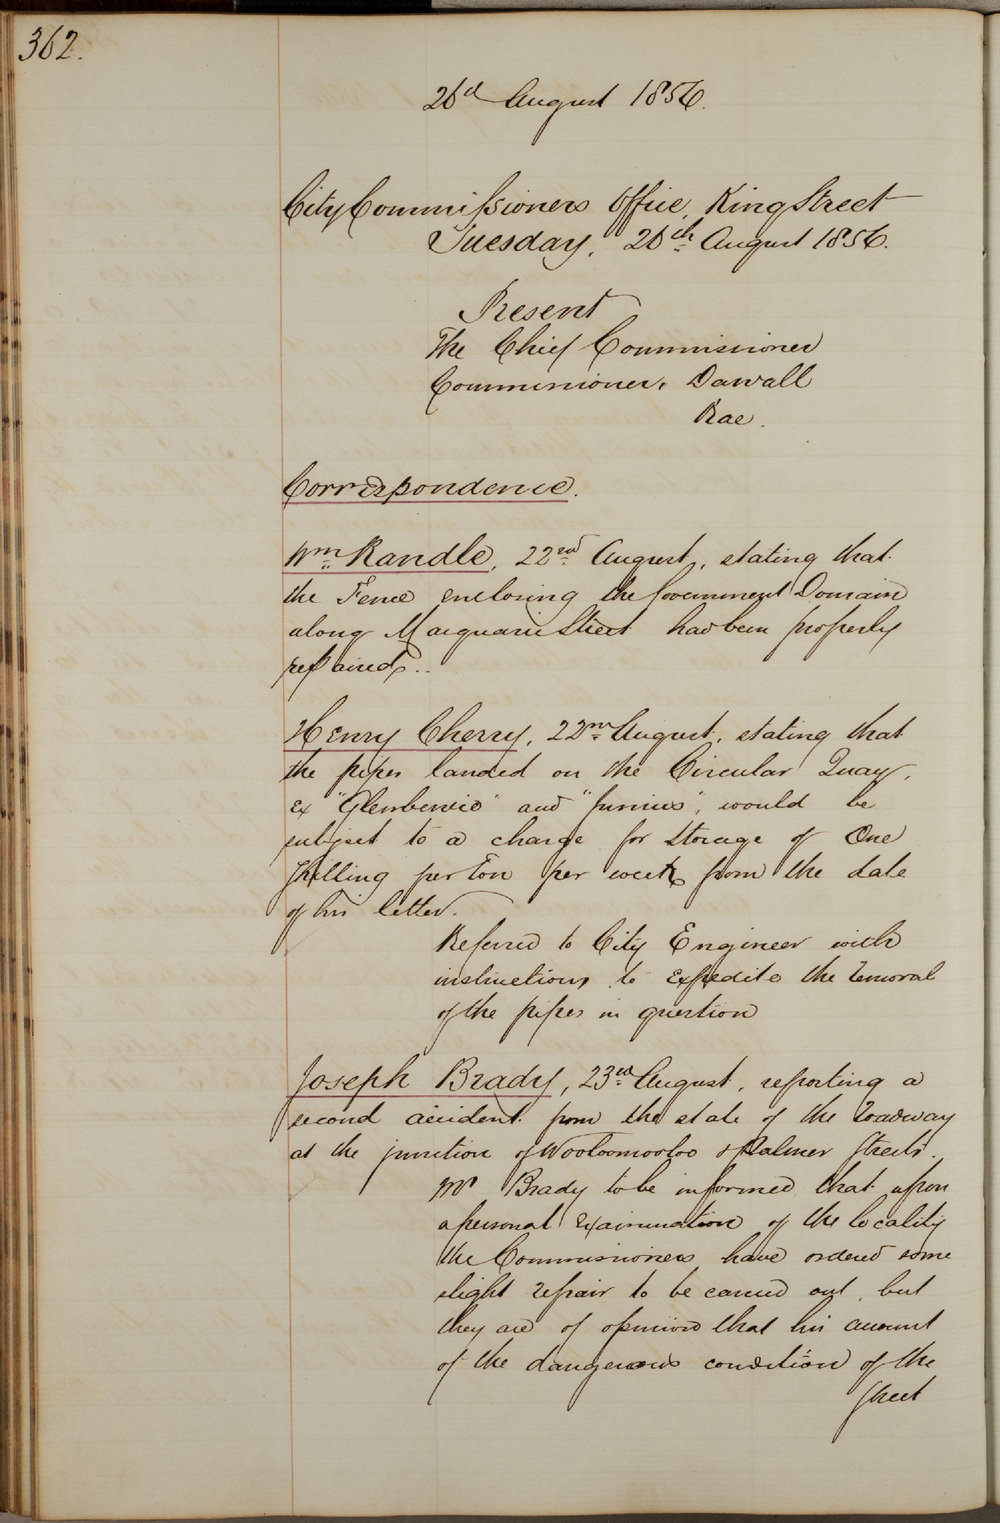 362.
26th August 1856.
City Commissioners Office, King Street
Tuesday, 26th August 1856.
Present
The Chief Commissioner
Commissioners Darvall
Rae.
Correspondence.
Wm Randle, 22nd August, stating that
the Fence enclosing the Government Domain
along Macquarie Street had been properly
repaired..
Henry Cherry, 22nd August, stating that
the pipes landed on the Circular Quay,
ex "Glenbervie" and "Junius", would be
subject to a charge for Storage of One
Shilling per Ton per week from the date
of his letter.
Referred to City Engineer with
instructions to expedite the removal
of the pipes in question
Joseph Brady, 23rd August, reporting a
second accident from the state of the roadway
at the junction of Wooloomooloo & Palmer Streets.
Mr Brady to be informed that upon
a personal examination of the locality
the Commissioners have ordered some
slight repair to be carried out, but
they are of opinion that his account
of the dangerous condition of the
Street